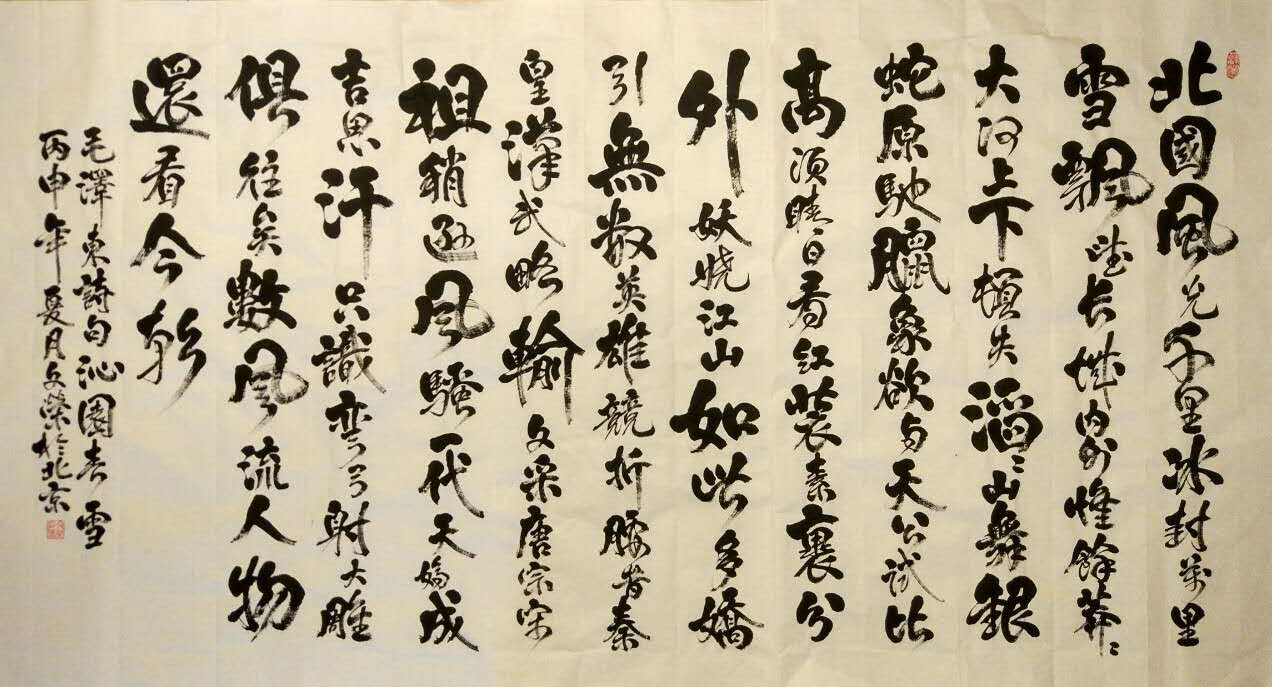 北國風光千里冰封萬里
雪飄望長城內外惟餘莽〻
大河上下頓失滔〻山舞銀
蛇原馳臘象欲与天公試比
高須晴日看紅裝素裹分
外妖嬈江山如此多嬌
引無数英雄競折腰昔秦
皇漢武略輸文采唐宗宋
祖稍遜風騷一代天嬌成
吉思汗只識弯弓射大雕
俱往矣數風流人物
還看今朝
毛澤東詩句沁園春雪
丙申年夏月文榮於北京